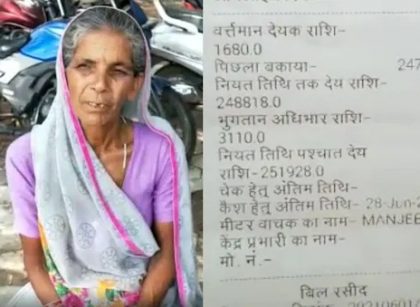 वर्त्तमान देयक राशि-
1680.0
पिछला बकाया- 247
नियत तिथि तक देय राशि-
248818.0
भुगतान अधिभार राशि-
3110.0
नियत तिथि पश्चात देय
राशि-251928.0
चेक हेतु अंतिम तिथि-
कैश हेतु अंतिम तिथि- 28-Jun-2
मीटर वाचक का नाम- MANJEE
केंद्र प्रभारी का नाम-
मो. नं.-
बिल रसीद